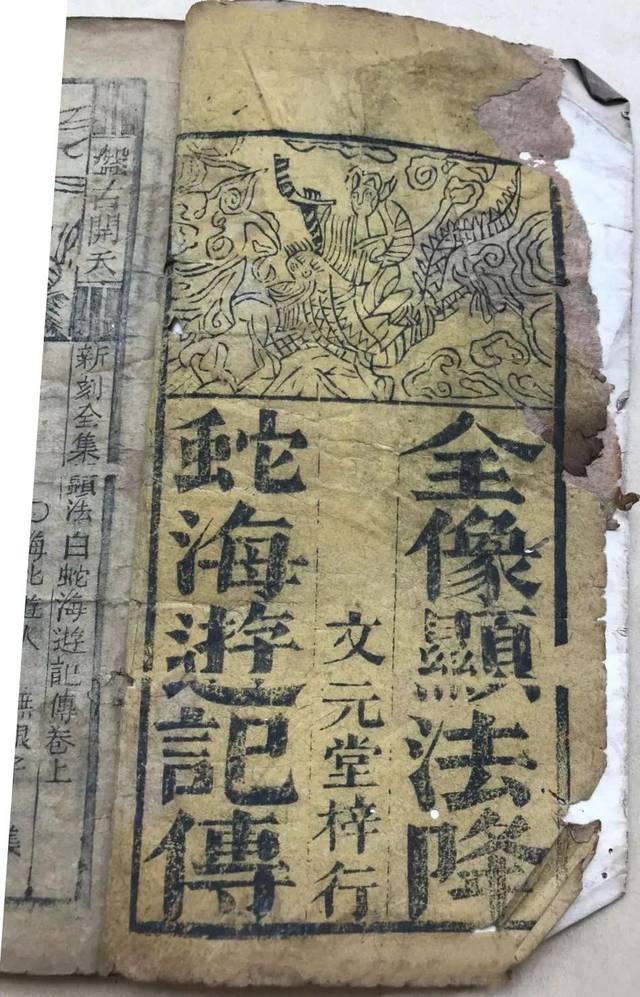 全像顯法降
文元堂梓行
蛇海遊記傳
盤古開天
新刻全集顯法白蛇海遊記傳卷上
海北遊人 無根子